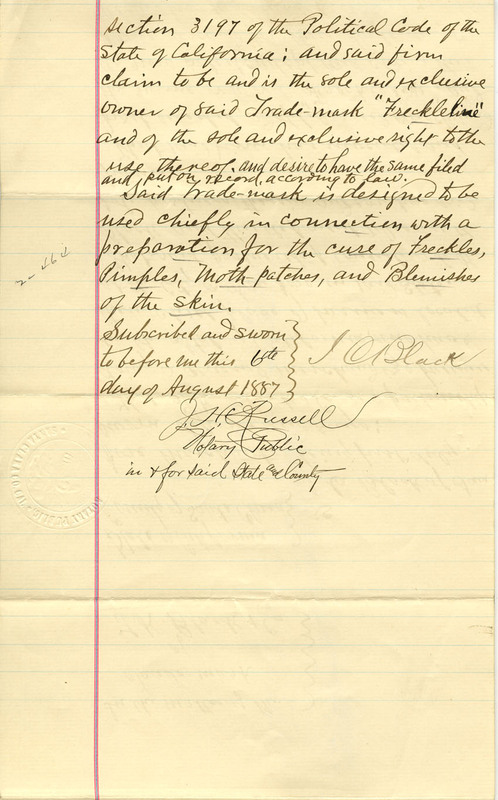 section 3197 of the Political Code of the
State of California; and said firm
claim to be and is the sole and exclusive
owner of said Trade-mark "Freckleline"
and of the sole and exclusive right to the
use thereof, and desire to have the same filed
and put on record, according to law.
Said Trade-mark is designed to be
used chiefly in connection with a
preparation for the cure of Freckles,
Pimples, Moth patches, and Blemishes
of the skin.
Subscribed and sworn
to before me this 6th
day of August 1887
J O Black
Russell
Notary Public
in & for said State and County